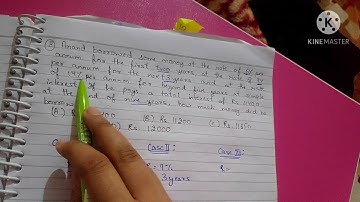 KINEMASTER
③ Anand borrowed some money at the rate of 6% per
annum for the first two years, at the rate of 9%
per annum for the next 3 years and at the rate
of 14% per annum for beyond five years at simple
interest. If he pays a total interest of Rs. 11400
at the end of nine years, how much money did he
(B) Rs. 11200
(D) Rs. 12000
Case II:
Case III:
R = 9%
3 years
R =